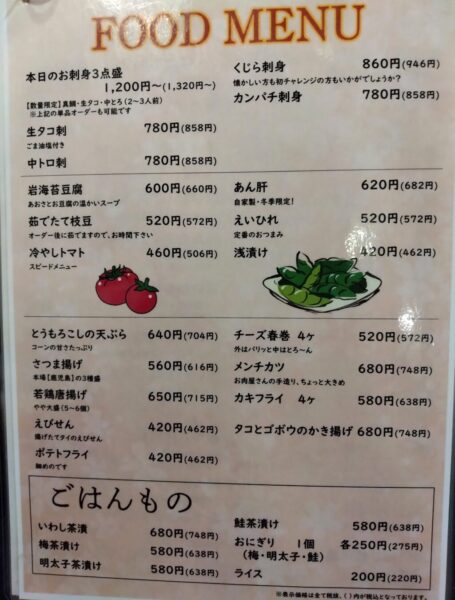 FOOD MENU
本日のお刺身3点盛
1,200円〜(1,320円〜)
【数量限定】真鯛・生タコ・中とろ(2〜3人前)
※上記の単品オーダーも可能です
生タコ刺 780円(858円)
ごま油塩付き
中トロ刺 780円(858円)
くじら刺身 860円(946円)
懐かしい方も初チャレンジの方もいかがでしょうか?
カンパチ刺身 780円(858円)
岩海苔豆腐 600円(660円)
あおさとお豆腐の温かいスープ
茹でたて枝豆 520円(572円)
オーダー後に茹でますので、お時間下さい
冷やしトマト 460円(506円)
スピードメニュー
あん肝 620円(682円)
自家製・冬季限定!
えいひれ 520円(572円)
定番のおつまみ
浅漬け 420円(462円)
とうもろこしの天ぷら 640円(704円)
コーンの甘さたっぷり
さつま揚げ 560円(616円)
本場【鹿児島】の3種盛
若鶏唐揚げ 650円(715円)
やや大盛(5〜6個)
えびせん 420円(462円)
揚げたてタイのえびせん
ポテトフライ 420円(462円)
細めのです
チーズ春巻 4ヶ 520円(572円)
外はパリッと中はとろ〜ん
メンチカツ 680円(748円)
お肉屋さんの手造り、ちょっと大きめ
カキフライ 4ヶ 580円(638円)
タコとゴボウのかき揚げ 680円(748円)
ごはんもの
いわし茶漬 680円(748円)
梅茶漬け 580円(638円)
明太子茶漬け 580円(638円)
鮭茶漬け 580円(638円)
おにぎり 1個 各250円(275円)
(梅・明太子・鮭)
ライス 200円(220円)
※表示価格は全て税抜、( )内が税込となっております。